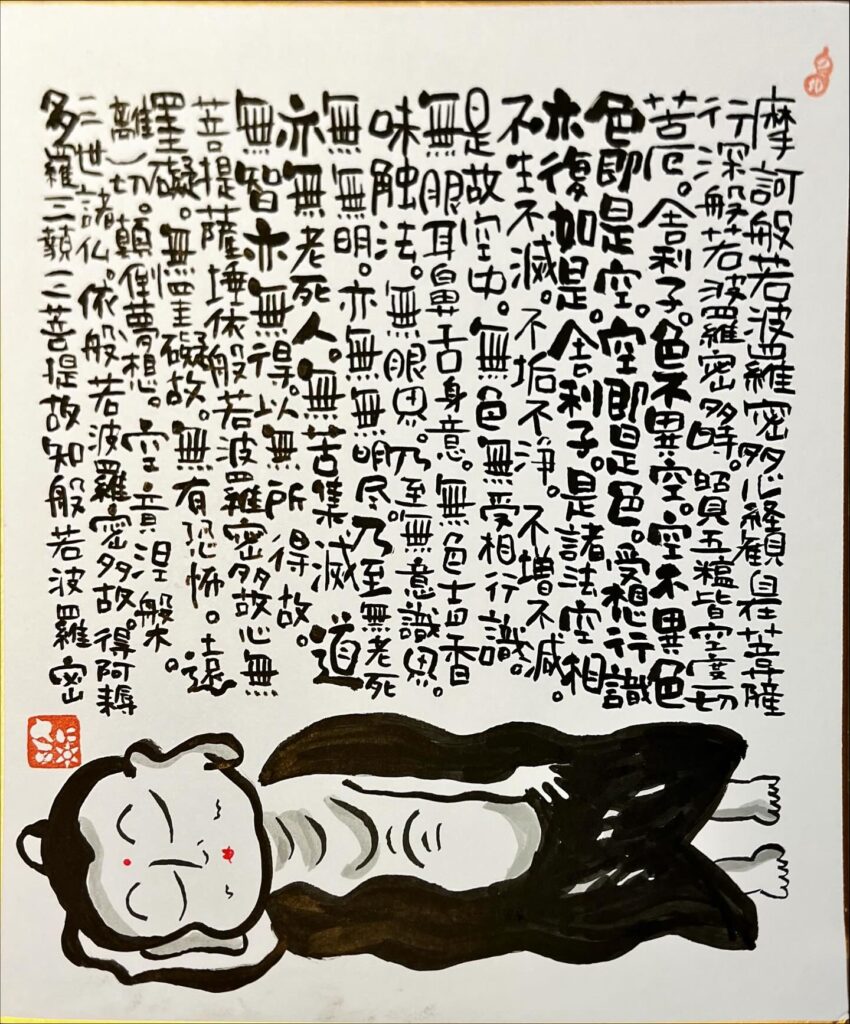 摩訶般若波羅密多心経観自在菩薩
行深般若波羅密多時。照見五蘊皆空度一切
苦厄。舎利子。色不異空。空不異色
色即是空。空即是色。受想行識
亦復如是。舎利子。是諸法空相
不生不滅。不垢不浄。不増不減。
是故空中。無色無受相行識。
無眼耳鼻舌身意。無色声香
味触法。無眼界。乃至無意識界。
無無明。亦無無明尽乃至無老死
亦無老死人。無苦集滅道
無智亦無得。以無所得故。
菩提薩埵依般若波羅密多故心無
罣礙。無罣礙故。無有恐怖。遠
離一切。顛倒夢想。究竟涅槃。
三世諸仏。依般若波羅密多故。得阿耨
多羅三藐三菩提故知般若波羅密